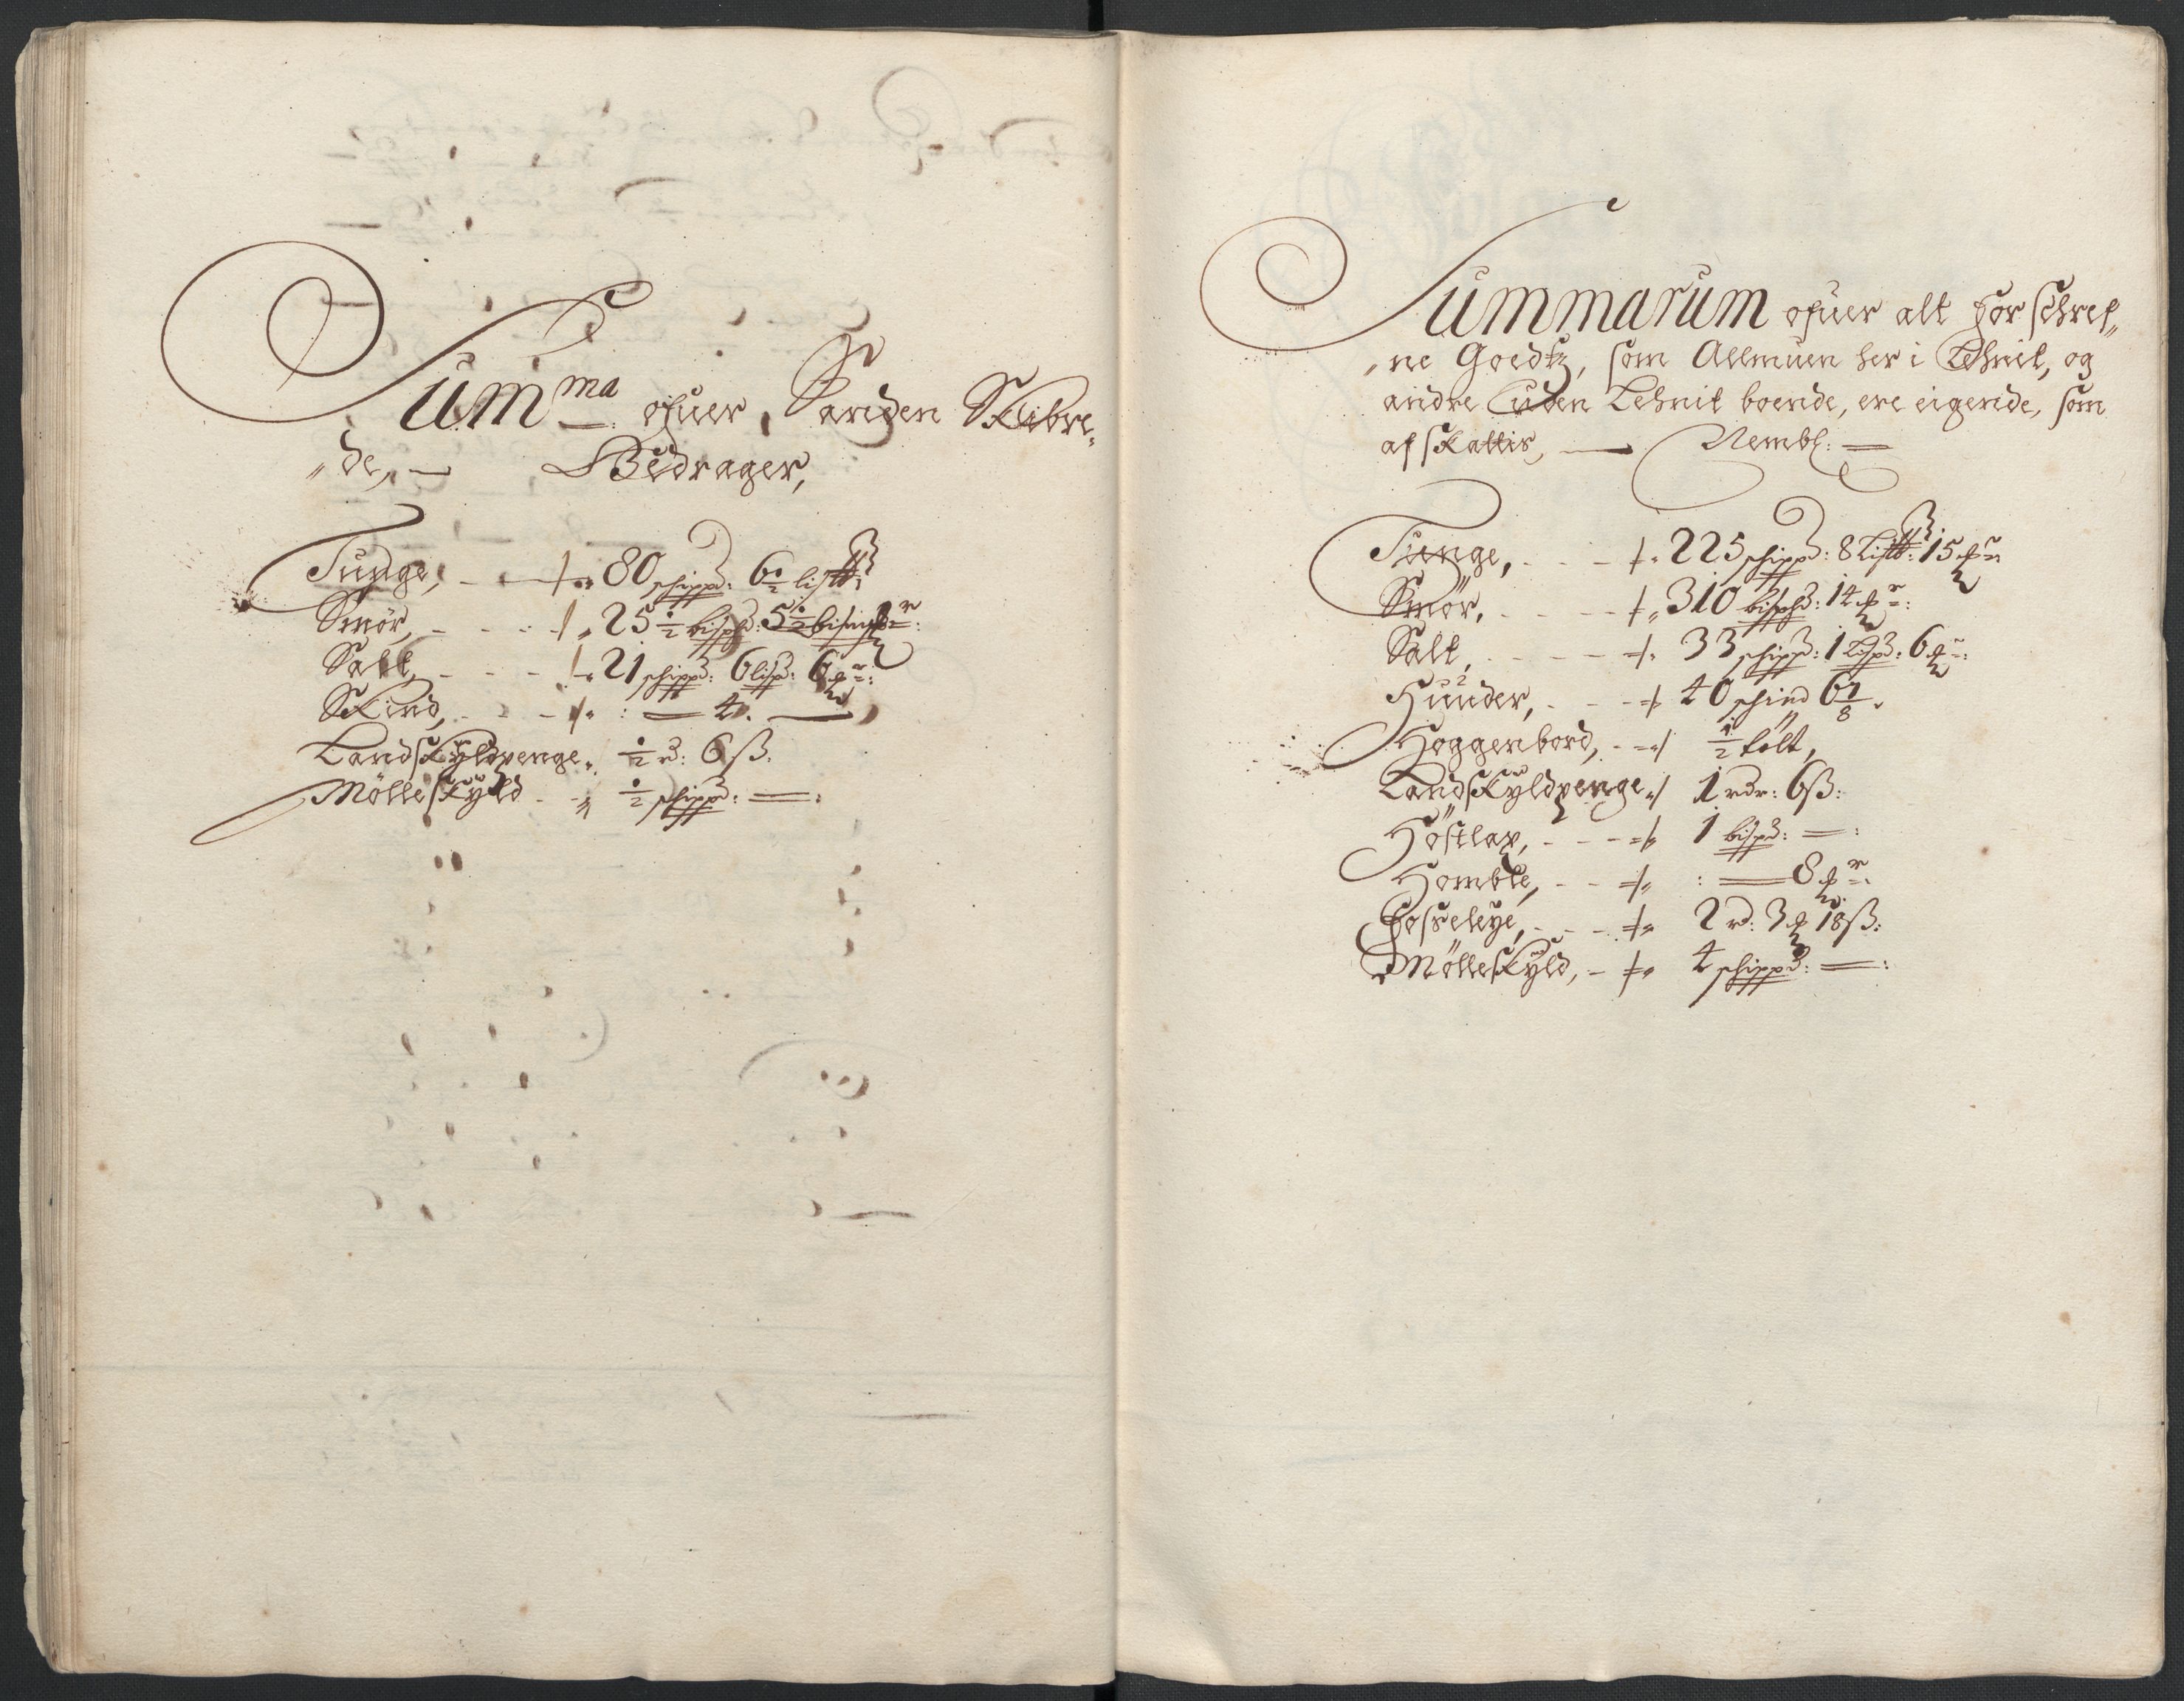 Sum ma ofuer, Sanden Skibre„
„de, — Bedrager,
Tunge, — 80 schippd: 6½ lispd:
Smør, — 25½ bispd: 5½ bismpr:
Salt, — 21 schippd: 6 lispd: 6 pr:
Skind, — 4. —
Landskÿldpenge, ½ rd: 6 ß.
Mølleskÿld — ½ schippd: —:
Summarum ofuer alt forschref„
„ne Goedtz, som Allmuen her i Lehnit, og
andre uden Lehnit boende, ere eigende, som
af skattis, — Nembl: —
Tunge, — 225 schippd: 8 Lispd: 15 pr:
Smør, — 310 bispd: 14 pr:
Salt, — 33 schippd: 1 Lispd: 6 pr:
Huuder, — 40 schind 6 7/8.
Hoggenbord, — ½ tolt,
Landskÿldpenge, 1 rdr: 6 ß:
Høstlax, — 1 bispd: —:
Homble, — : — 8 pr:
Fosseleÿe, — 2 rd: 3 18 ß:
Mølleskÿld, — 4 schippd: —: